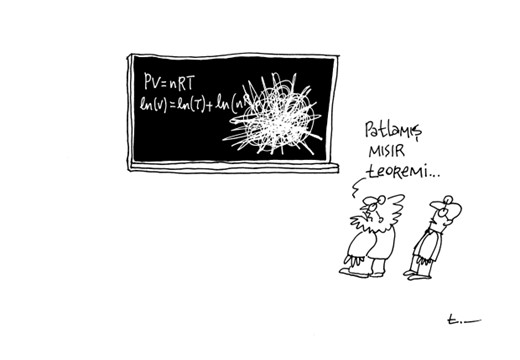 PV=nRT
ln(V)=ln(T)+ln(nR
Patlamış
MISIR
teoremi...
t.—